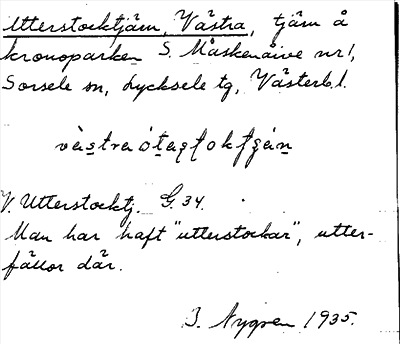 Utterstocktjärn, Västra, tjärn å
kronoparken S. Måskenåive nr 1,
Sorsele sn, Lycksele tg, Västerb. l.
västra
V. Utterstocktj. G 34.
Man har haft "utterstockar", utter-
fällor där.
J. Nygren 1935.